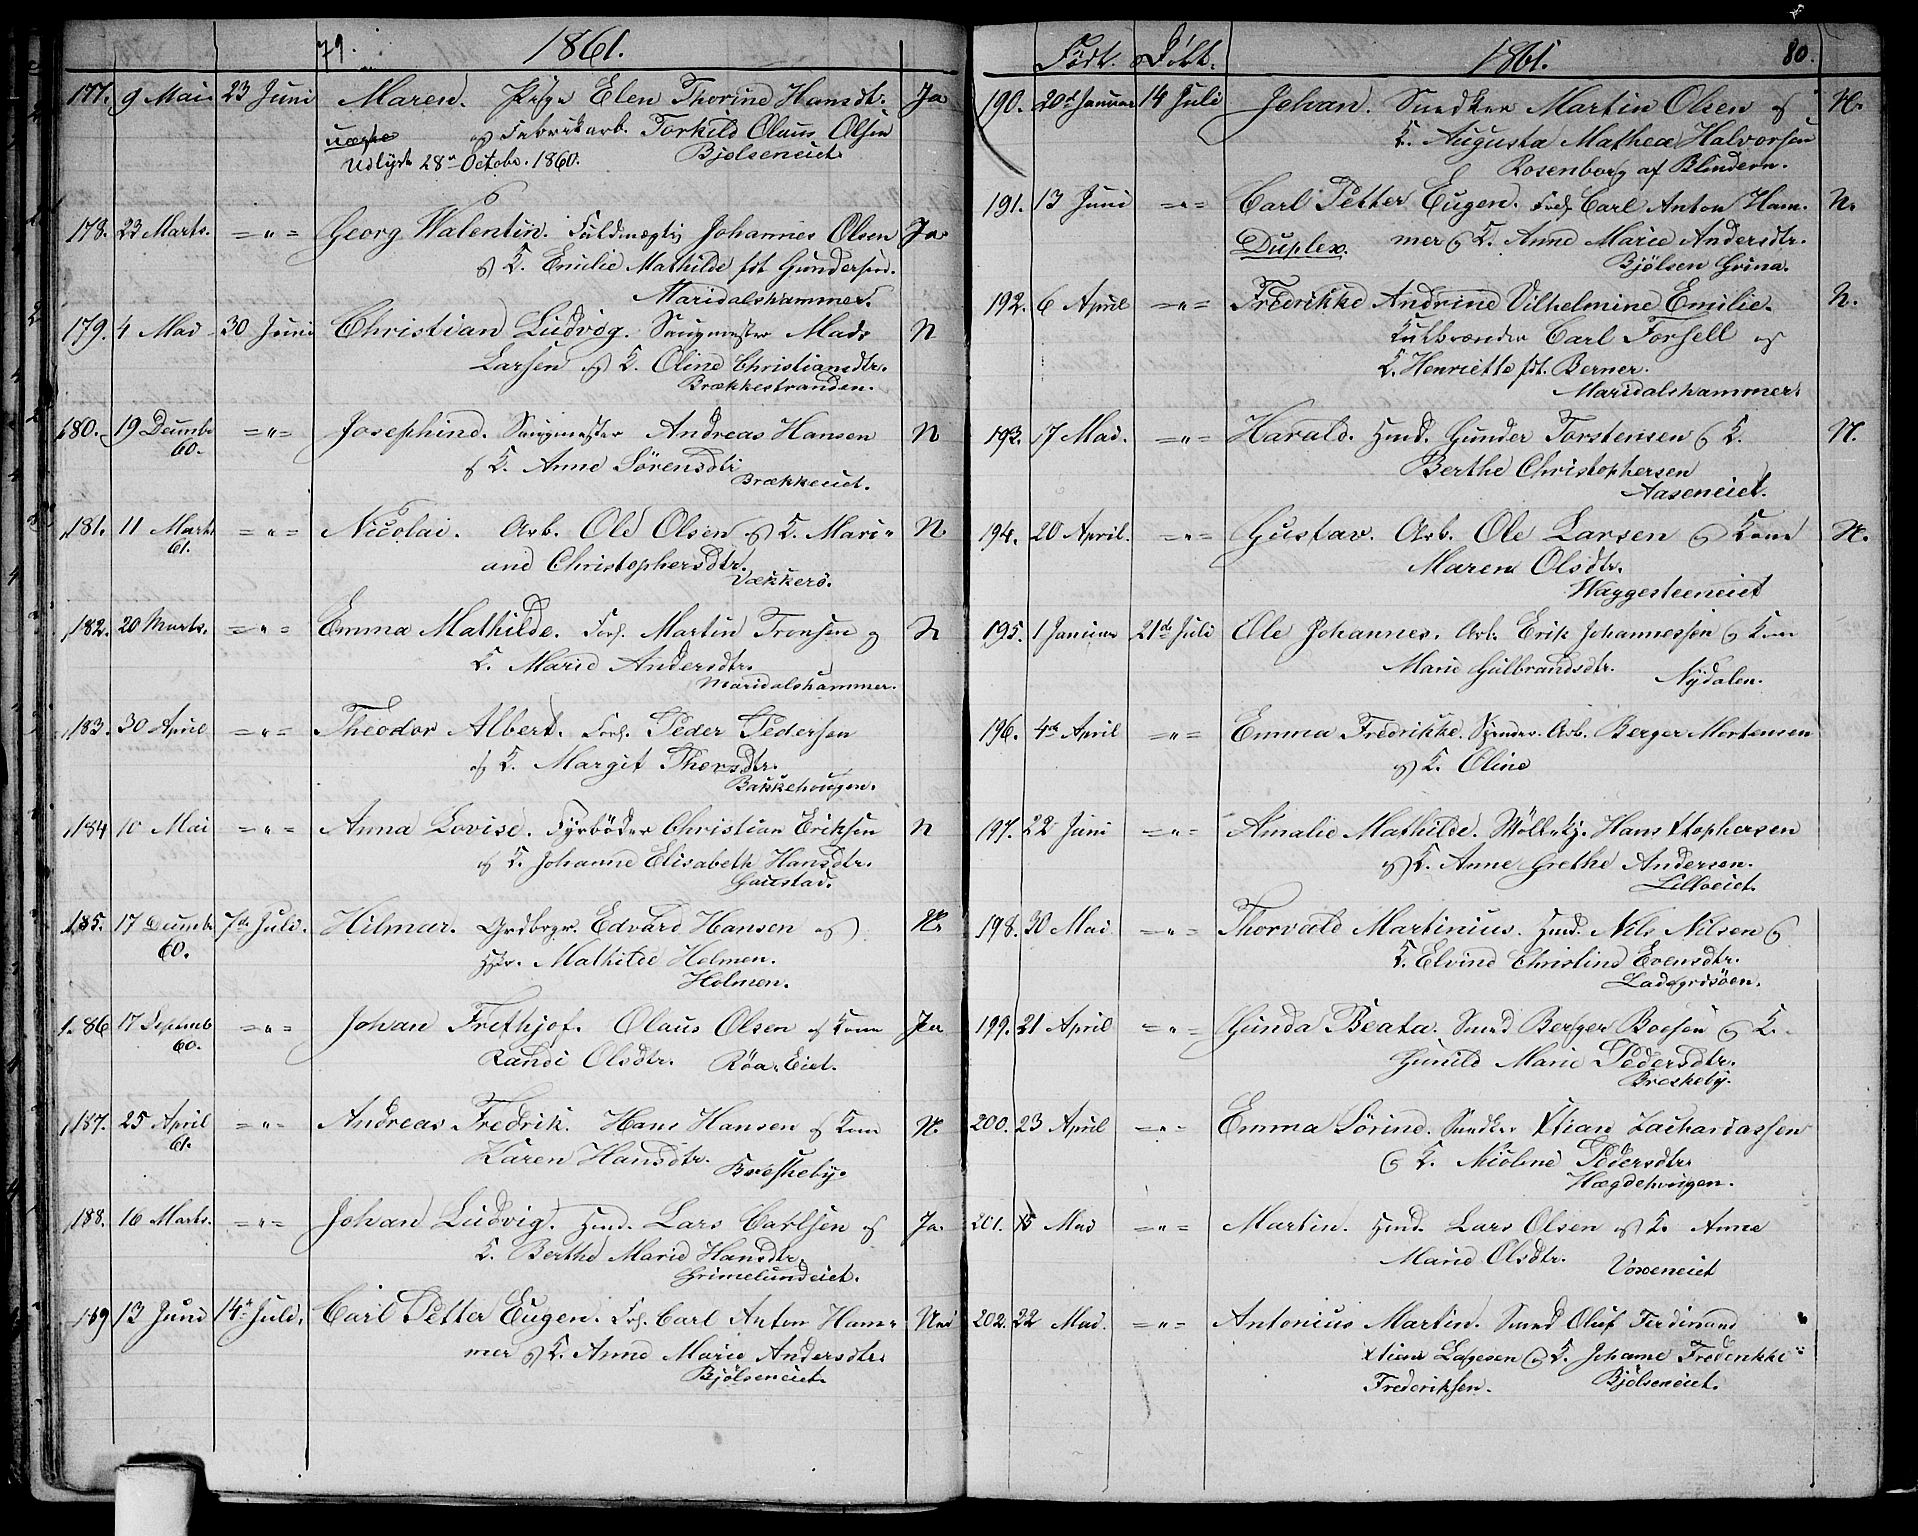 79.
1861.
177. 9 Mai 23 Juni Maren. Pige Elen Thorine Hansdtr. Ja
uægte og Fabrikarb. Torkild Olaus Olsen
Udlagt 28 Octobr. 1860. Bjølseneiet
178. 23 Marts. =„= Georg Valentin. Fuldmægtig Johannes Olsen Ja
og K. Emilie Mathilde fdt Gundersen.
Maridalshammer.
179. 4 Mai 30 Juni Christian Ludvog. Saugmester Mads N
Larsen og K. Oline Christiansdtr.
Brækkestranden.
180. 19 Decembr =„= Josephine. Saugmester Andreas Hansen N
60. og K. Anne Sörensdtr
Brækkeeiet.
181. 11 Marts =„= Nicolai. Arb. Ole Olsen og K. Mari- N
61. ane Christophersdtr.
Vækkerö.
182. 20 Marts. =„= Emma Mathilde. Forp. Martin Tronsen og N
K. Marie Andersdtr.
Maridalshammer.
183. 30 April =„= Theodor Albert. Forp. Peder Pedersen
og K. Margit Thorsdtr.
Bakkehougen.
184 10 Mai =„= Anna Lovise. Fyrböder Christian Eriksen N
og K. Johanne Elisabeth Hansdtr.
Gaustad.
185. 17 Decembr 7de Juli. Hilmar. Grdbrgr. Edvard Hansen og N.
60. Mathilde Holmen.
Holmen.
186 17 Septembr =„= Johan Frethjof. Olaus Olsen og Kone Ja
60. Randi Olsdtr. Röa-Eiet.
187. 25 April =„= Andreas Fredrik. Hans Hansen og Kone N.
61. Karen Hansdtr. Breskeby.
188. 16 Marts. =„= Johan Ludvig. Hmd. Lars Carlsen og Ja.
K. Berthe Marie Hansdtr
Grimelundeiet.
189 13 Juni 14 Juli. Carl Petter Eugen. Carl Anton Ham- Nei
mer og K. Anne Marie Andersdtr.
Bjölseneiet.
Födt. Döbt. 1861. 80.
190. 20d Januar 14 Juli Johan. Snedker Martin Olsen og N.
K. Augusta Mathea Halvorsen
Rosenborg af Blindern.
191. 13 Juni =„= Carl Petter Eugen. Carl Anton Ham- N.
Duplex. mer og K. Anne Marie Andersdtr.
Bjölsen Grina.
192. 6 April =„= Fredrikke Andrine Vilhelmine Emilie. N.
Kulbrænder Carl Forsell og
K. Henriette fdt. Berner.
Maridalshammer.
193. 17 Mai. =„= Harald. Hmd. Gunder Torstensen og K. N.
Berthe Christophersen
Aaseneiet.
194. 20 April. =„= Gustav. Arb. Ole Larsen og Kone N.
Maren Olsdtr.
Waggesteeneiet
195. 1 Januar 21de Juli Ole Johannes. Arb. Erik Johannessen og Kone
Marie Gulbrandsdtr. Nydalen.
196. 4de April =„= Emma Fredrikke. Arb. Berger Mortensen
og K. Oline
197. 22 Juni =„= Amalie Mathilde. Hans Xtophersen
og K. Anne Grethe Andersen.
Lilloeiet.
198. 30 Mai =„= Thorvald Martinius. Hmd. Nils Nilsen og
K. Elvine Christine Evensdtr.
Ladegrdsöen.
199. 21 April =„= Gunda Beata. Smed Berger Boesen og K.
Gunild Marie Pedersdtr.
Breskeby.
200. 23 April =„= Emma Sörine. Snedker Xtian Zachariassen
og K. Nicoline Pedersdtr.
Hægdehougen.
201. 15 Mai =„= Martin. Hmd. Lars Olsen og K. Anne
Marie Olsdtr. Voxeneiet
202. 22 Mai. =„= Antonius Martin. Smed Oluf Ferdinand
Xtian Lagesen og K. Johanne Frederikke
Frederiksen. Bjölseneiet.